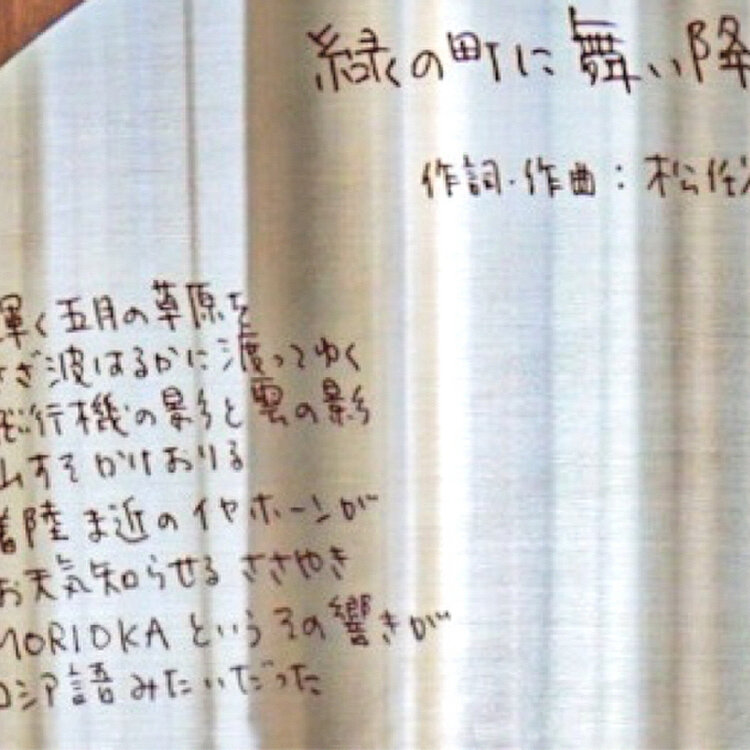 緑の町に舞い降
作詞・作曲：松任
輝く五月の草原を
さざ波はるかに渡ってゆく
飛行機の影と雲の影
山すそかけおりる
着陸ま近のイヤホーンが
お天気知らせるささやき
MORIOKAというその響きが
ロシア語みたいだった